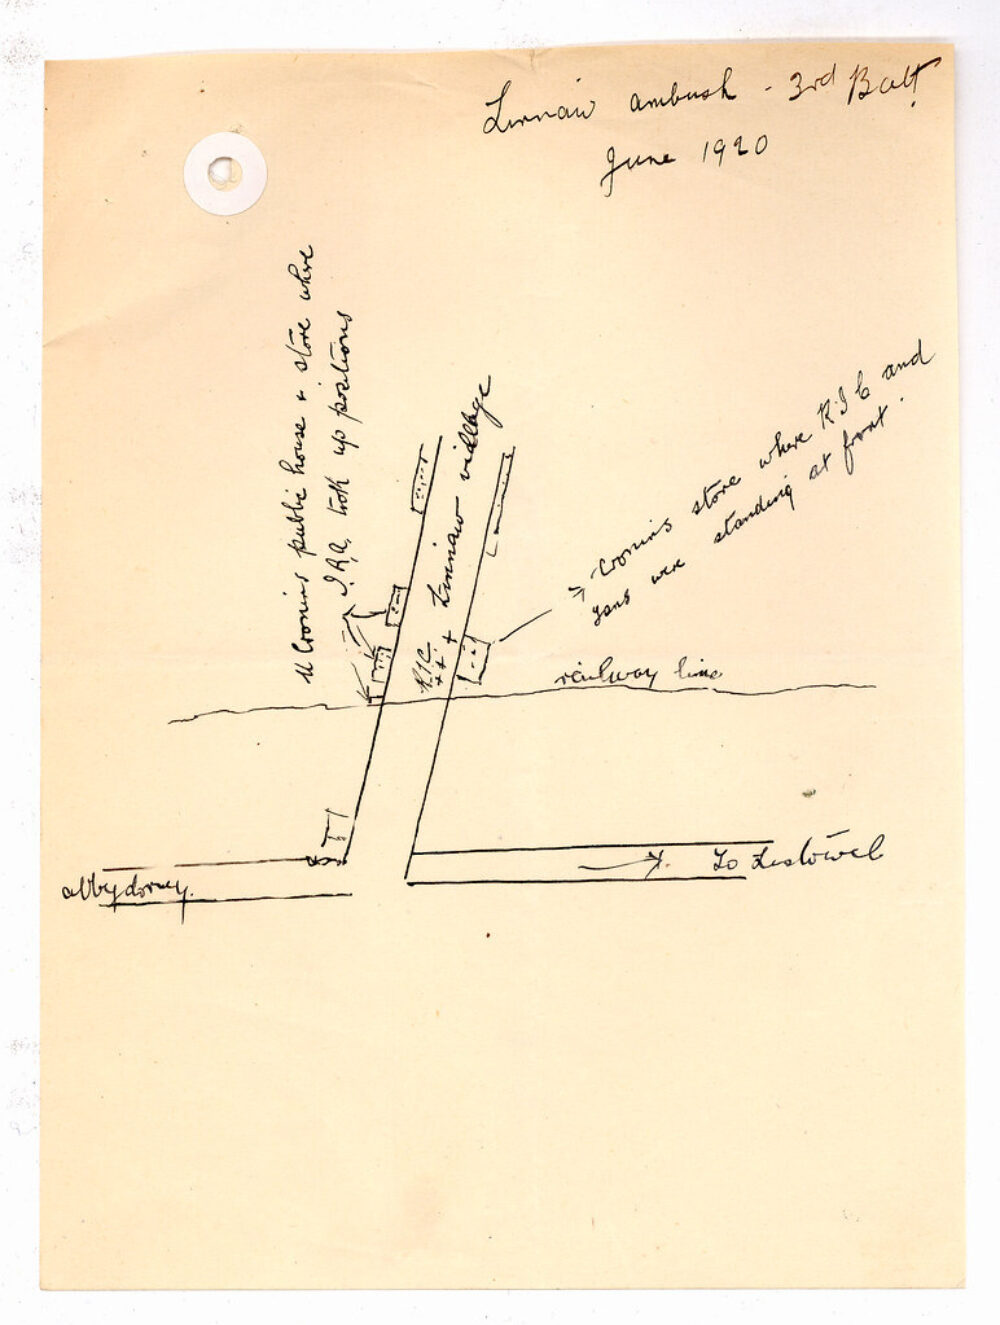 Lixnaw ambush - 3rd Batt.
June 1920
M Cronins public house + store where
I.R.A. took up positions
Lixnaw village
RIC
Cronins store where R.I.C and
Tans were standing at front.
railway line
abbydorney.
To Listowel